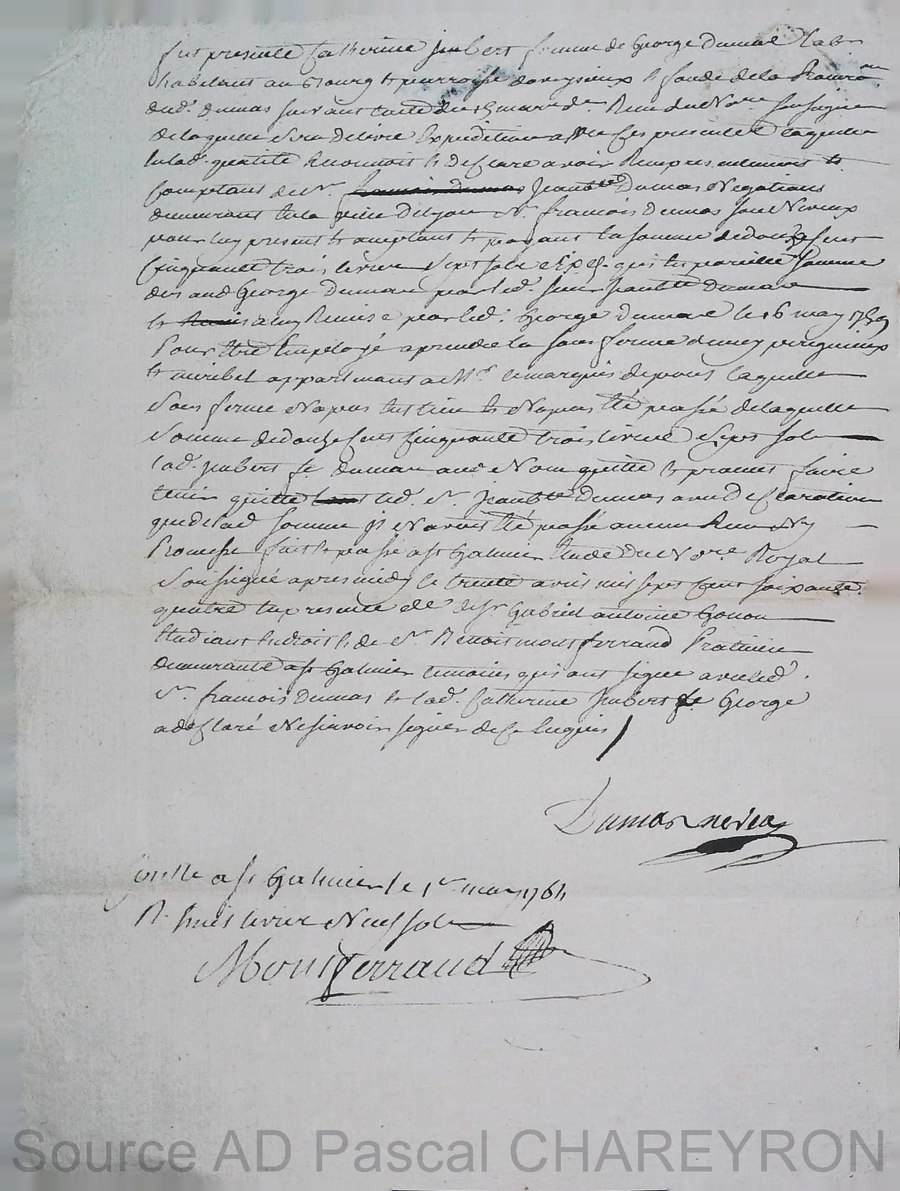 fut presente Catherine Jmbert femme de George Dumas lab
habitant au bourg & parroisse fondé de la
dud. dumas suivant lacte du mars de soussigné
de laquelle sera delivré Expedition avec ces presentes laquelle
aud. qualité Reconnoit & declare avoir Reeu presentement &
Comptant de sr. Jean bte Dumas Negotiant
demeurant en la ville de lyon sr. françois dumas son Neveux
pour luy present & acceptant & payant la somme de douze cent
Cinquante trois livres Sept sols
George dumas par led. sieur Jean bte dumas
& a luy Remise par led. George dumas le 16 may 1759
Pour être Employé a prendre la sous ferme
& miribel appartenans a Mr. le marquis de laquelle
sous ferme Na pas Eut lieu & Na pas été passé de laquelle
somme de douze cent cinquante trois livres Sept sols
lad. jmbert fe. dumas aud. Nom quitte & promet faire
tenir quitte led. sr. jean bte Dumas avec declaration
que de lad. somme il N'avoit été passé aucun Reeu Ny
Promesse fait & passé a st Galmier Etude du No.re Royal
Soussigné apres midy le trente avril mil sept cent soixante
quatre En presence de sr Gabriel antoine Gonon
Etudiant En droit & de sr. Benoit montferrand Praticien
demeurants a st Galmier temoins qui ont signé avec led.
sr. françois Dumas & lad. Catherine Jmbert fe George
a declaré Ne sçavoir signer de ce Enquis
Dumas neveu
Conlle a st Galmier le 1er may 1764
R. huit livres Neuf sols
Montferrand
Source AD Pascal CHAREYRON